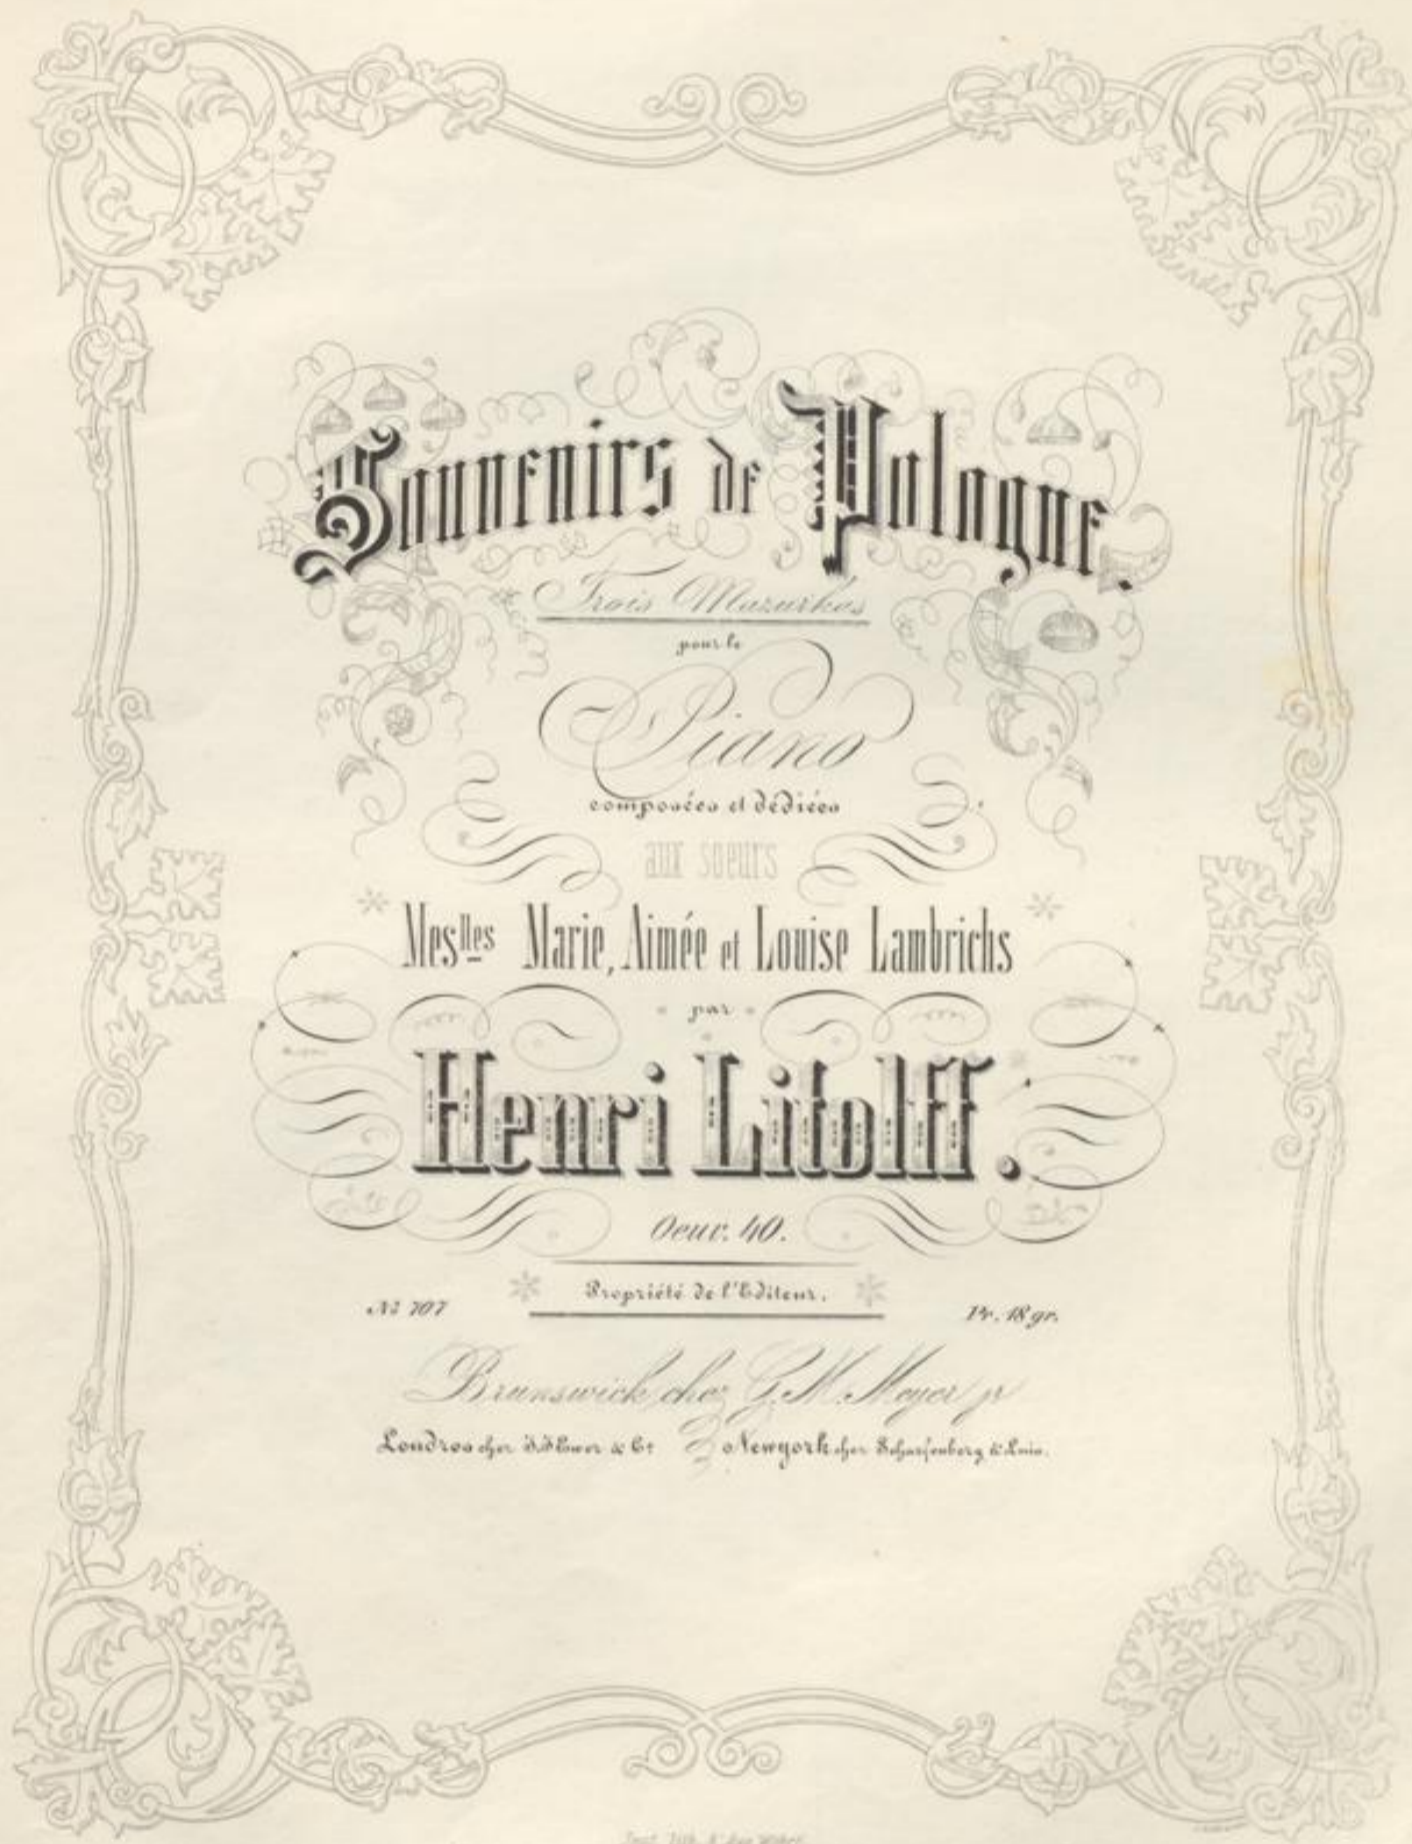 Souvenirs de Pologne.
Trois Mazurkas
pour le
Piano
composées et dédiées
aux soeurs
Meslles Marie, Aimée et Louise Lambrichs
par
Henri Litolff.
Oeuv. 40.
Propriété de l'Editeur.
No 707
Pr. 18 gr.
Brunswick chez G. M. Meyer jr
Londres chez J. J. Ewer & Co Newyork chez Scharfenberg & Luis.